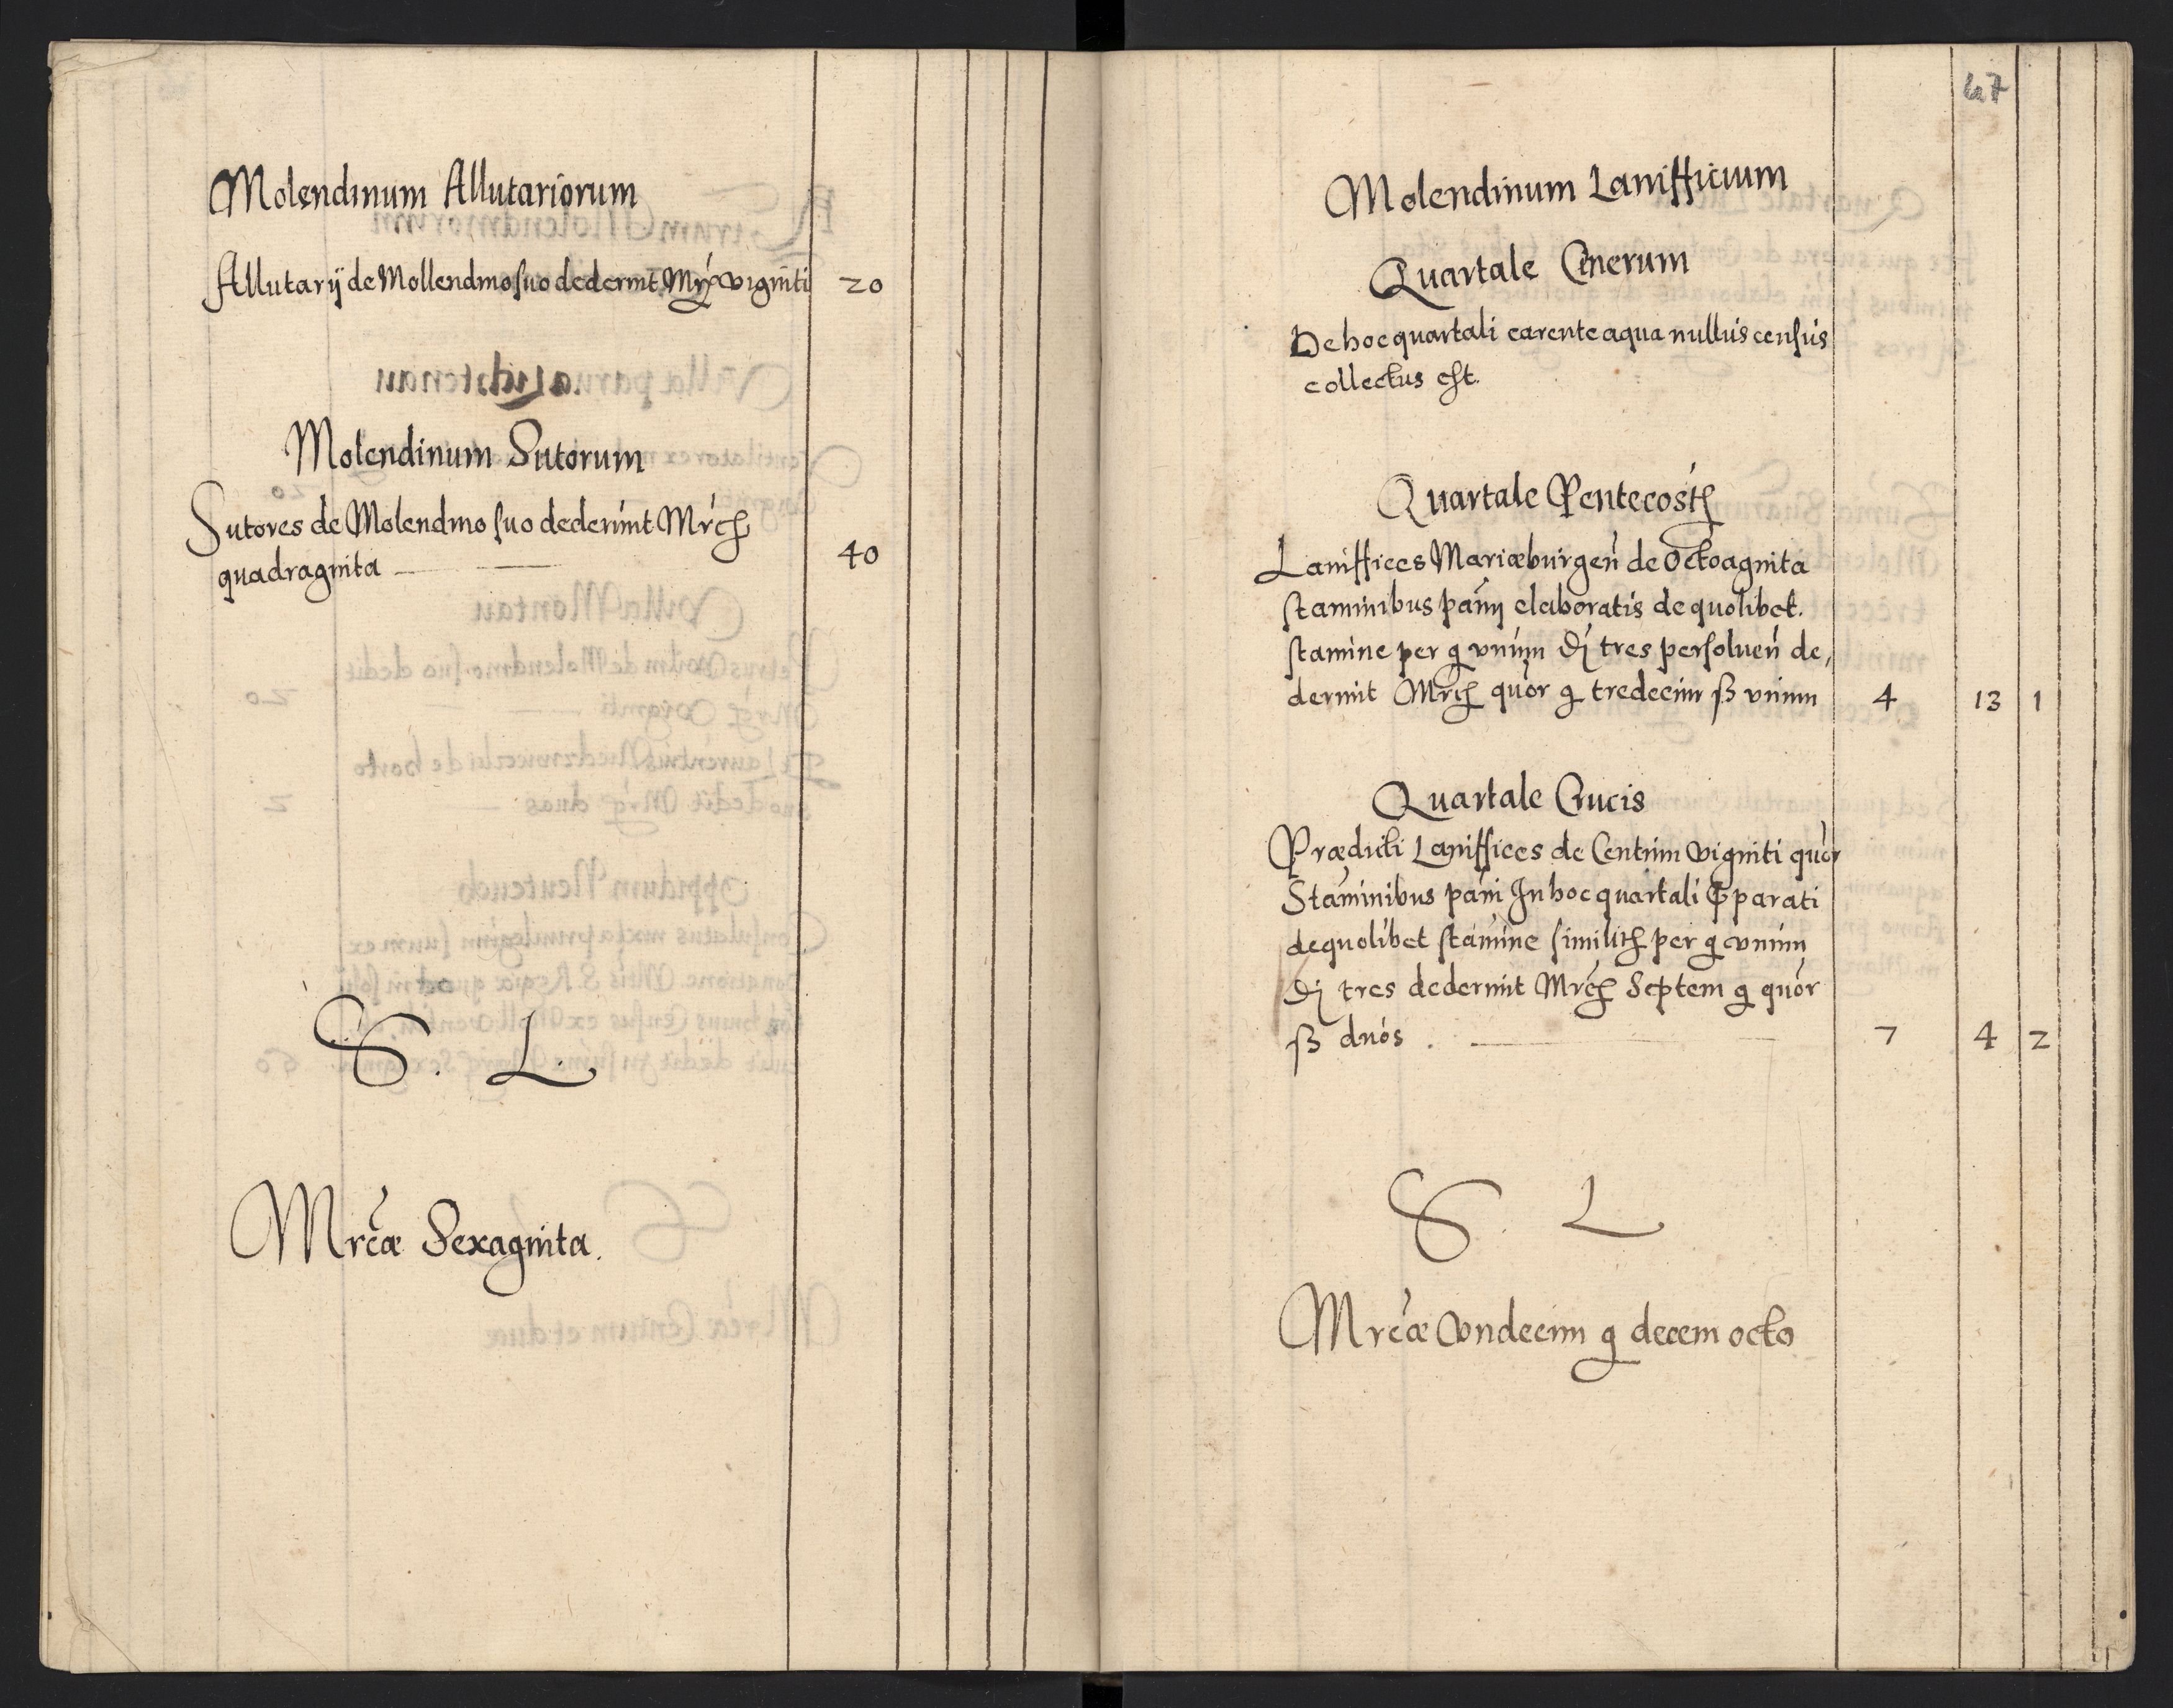 Molendinum Allutariorum
Allutarij de Mollendino suo dederint Mrc vigniti 20
Molendinum Sutorum
Sutores de Molendino suo dederint Mrc
quadraginta 40
S. L.
Mrcæ Sexaginta.
47
Molendinum Lanifficium
Quartale Cinerum
De hoc quartali carente aqua nullus census
collectus est.
Quartale Pentecost
Laniffices Mariæburgen de Octoaginta
staminibus pani elaboratis de quolibet
stamine per g vnum tres persoluen de,
derint Mrc quor g tredecim ß vnum 4 13 1
Quartale Crucis
Prædicti Laniffices de Centum vigniti quor
Staminibus pani In hoc quartali pparati
de quolibet stamine similit per g vnum
tres dederint Mrc Septem g quor
ß duos . 7 4 2
S. L
Mrcæ Vndecim g decem octo